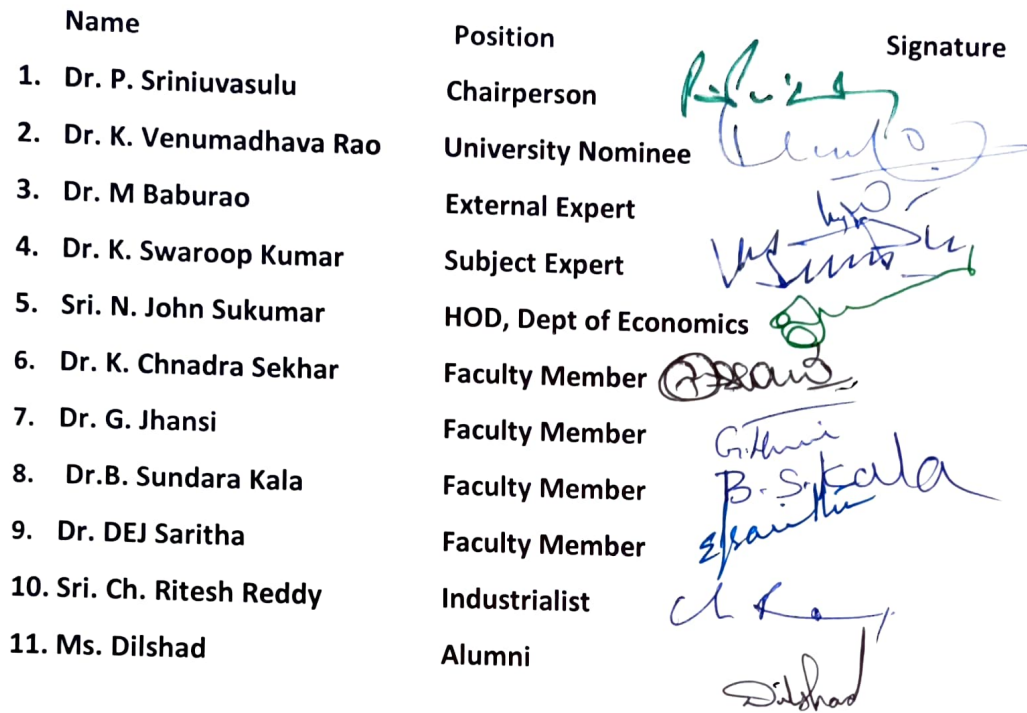 Name Position Signature
1. Dr. P. Sriniuvasulu Chairperson
2. Dr. K. Venumadhava Rao University Nominee
3. Dr. M Baburao External Expert
4. Dr. K. Swaroop Kumar Subject Expert
5. Sri. N. John Sukumar HOD, Dept of Economics
6. Dr. K. Chnadra Sekhar Faculty Member
7. Dr. G. Jhansi Faculty Member
8. Dr.B. Sundara Kala Faculty Member B. S. Kala
9. Dr. DEJ Saritha Faculty Member
10. Sri. Ch. Ritesh Reddy Industrialist
11. Ms. Dilshad Alumni Dilshad